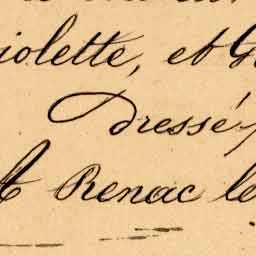 iolette, et G
Dressé
à Renac le